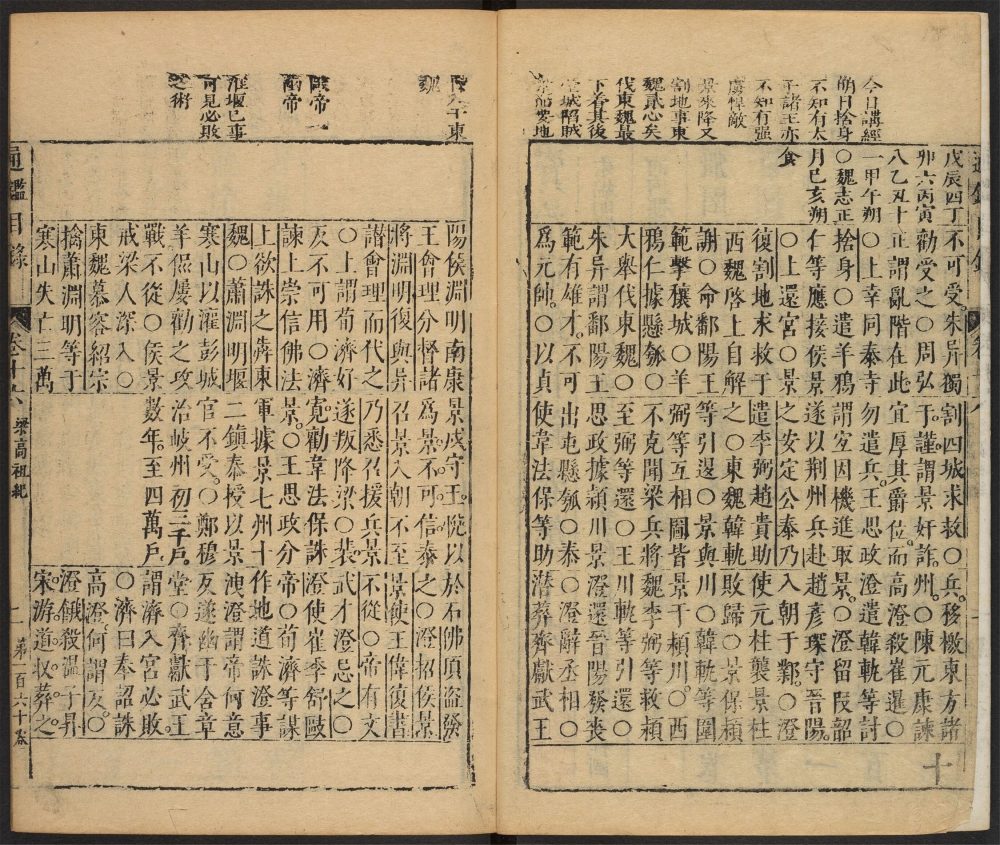 今日講經
朔日捨身
不知有太
于諸王亦
不知有强
虜悍敵
景來降又
割地事東
魏貳心矣
伐東魏最
下着其後
臺城陷賊
戊辰四丁
卯六丙寅
八乙丑十
一甲午朔
○魏志正
月己亥朔
食
不可受朱异獨
勸受之○周弘
正謂亂階在此
○上幸同泰寺
捨身○遣羊鴉
仁等應接侯景
○上還宮○景
復割地求救于
西魏啓上自解
謝○命鄱陽王
範擊穰城○羊
鴉仁據懸瓠○
大舉伐東魏○
朱异謂鄱陽王
範有雄才不可
爲元帥○以貞
割四城求救○
于謹謂景奸詐
宜厚其爵位而
勿遣兵王思政
謂宜因機進取
遂以荆州兵赴
之安定公泰乃
遣李弼趙貴助
之○東魏韓軌
等引還○景與
弼等互相圖皆
不克聞梁兵將
至弼等還○王
思政據潁川景
出屯懸瓠○泰
使韋法保等助
兵移檄東方諸
州○陳元康諫
高澄殺崔暹○
澄遣韓軌等討
景○澄留段韶
趙彦琛守晉陽
入朝于鄴○澄
使元柱襲景柱
敗歸○景保潁
川○韓軌等圍
景于潁川○西
魏李弼等救潁
川軌等引還○
澄還晉陽發喪
○澄辭丞相○
潜葬齊獻武王
十
魏
帝一
帝
淮堰已事
可見必敗
之術
陽侯淵明南康
王會理分督諸
將淵明復與异
譖會理而代之
○上謂荀濟好
反不可用○濟
諫上崇信佛法
上欲誅之犇東
魏○蕭淵明堰
寒山以灌彭城
羊侃屢勸之攻
戰不從○侯景
戒梁人深入○
東魏慕容紹宗
擒蕭淵明等于
寒山失亡三萬
景戍守王悅以
爲景不可信泰
召景入朝不至
乃悉召援兵景
遂叛降梁○裴
寬勸韋法保誅
景○王思政分
軍據景七州十
二鎮泰授以景
官不受○鄭穆
治岐州初三千戶
數年至四萬戶
於石佛頂盜發
之○澄招侯景
景使王偉復書
不從○帝有文
武才澄忌之○
澄使崔季舒毆
帝○荀濟等謀
作地道誅澄事
洩澄謂帝何意
反遂幽于含章
堂○齊獻武王
謂濟入宮必敗
○濟曰奉詔誅
高澄何謂反○
澄餓殺溫子昇
宋游道收葬之
通鑑目錄 卷十六 梁高祖紀 第一百六十卷